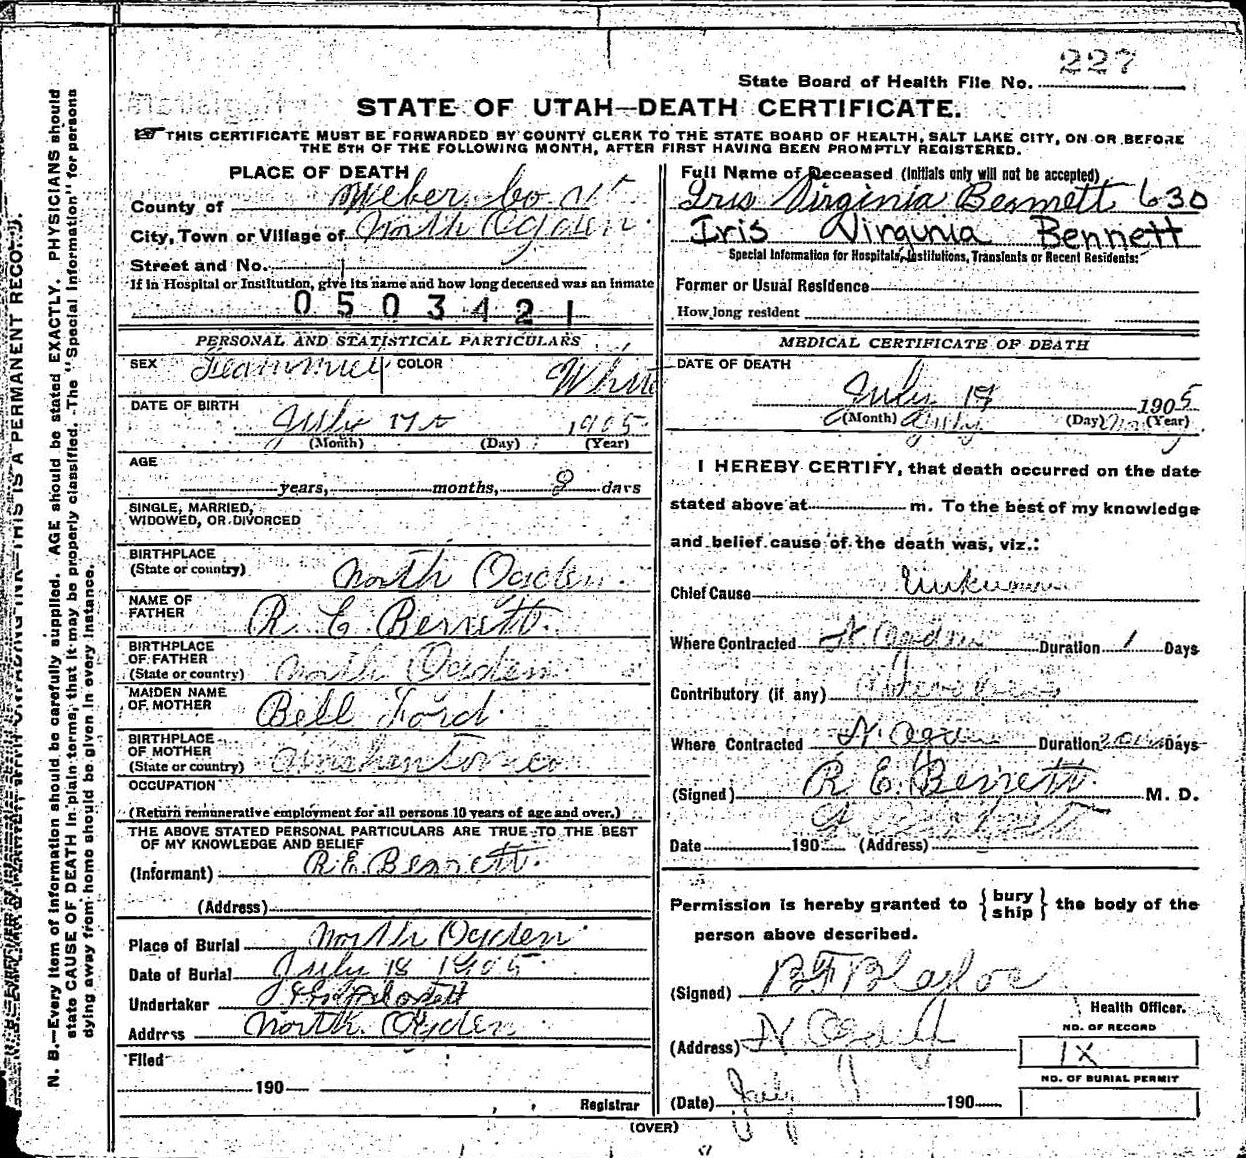 227
State Board of Health File No.
STATE OF UTAH—DEATH CERTIFICATE.
THIS CERTIFICATE MUST BE FORWARDED BY COUNTY CLERK TO THE STATE BOARD OF HEALTH, SALT LAKE CITY, ON OR BEFORE
THE 5TH OF THE FOLLOWING MONTH, AFTER FIRST HAVING BEEN PROMPTLY REGISTERED.
N. B.—Every item of information should be carefully supplied. AGE should be stated EXACTLY. PHYSICIANS should
state CAUSE OF DEATH in plain terms, that it may be properly classified. The "Special Information" for persons
dying away from home should be given in every instance.
THIS IS A PERMANENT RECORD.
PLACE OF DEATH
County of Weber Co Ut
City, Town or Village of North Ogden
Street and No.
If in Hospital or Institution, give its name and how long deceased was an inmate
0503421
PERSONAL AND STATISTICAL PARTICULARS
SEX
COLOR White
DATE OF BIRTH
July 17 1905
(Month) (Day) (Year)
AGE
years, months, days
SINGLE, MARRIED,
WIDOWED, OR DIVORCED
BIRTHPLACE
(State or country) North Ogden
NAME OF
FATHER R E Berrett
BIRTHPLACE
OF FATHER
(State or country) North Ogden
MAIDEN NAME
OF MOTHER Bell Ford
BIRTHPLACE
OF MOTHER
(State or country)
OCCUPATION
(Return remunerative employment for all persons 10 years of age and over.)
THE ABOVE STATED PERSONAL PARTICULARS ARE TRUE TO THE BEST
OF MY KNOWLEDGE AND BELIEF
(Informant) R.E. Berrett.
(Address)
Place of Burial North Ogden
Date of Burial July 18 1905
Undertaker
Address North Ogden
Filed
190
Registrar
Full Name of Deceased (Initials only will not be accepted)
Iris Virginia Bennett 630
Iris Virginia Bennett
Special Information for Hospitals, Institutions, Transients or Recent Residents:
Former or Usual Residence
How long resident
MEDICAL CERTIFICATE OF DEATH
DATE OF DEATH
July 1905
(Month) (Day) (Year)
I HEREBY CERTIFY, that death occurred on the date
stated above at m. To the best of my knowledge
and belief cause of the death was, viz.:
Chief Cause Unknown
Where Contracted N. Ogden Duration 1 Days
Contributory (if any)
Where Contracted N. Ogden Duration Days
(Signed) R E Berrett M. D.
Date 190 (Address)
Permission is hereby granted to { bury ship } the body of the
person above described.
(Signed) B F Blaylock
Health Officer.
(Address) N Ogden
NO. OF RECORD
IX
NO. OF BURIAL PERMIT
(Date) July 190
(OVER)